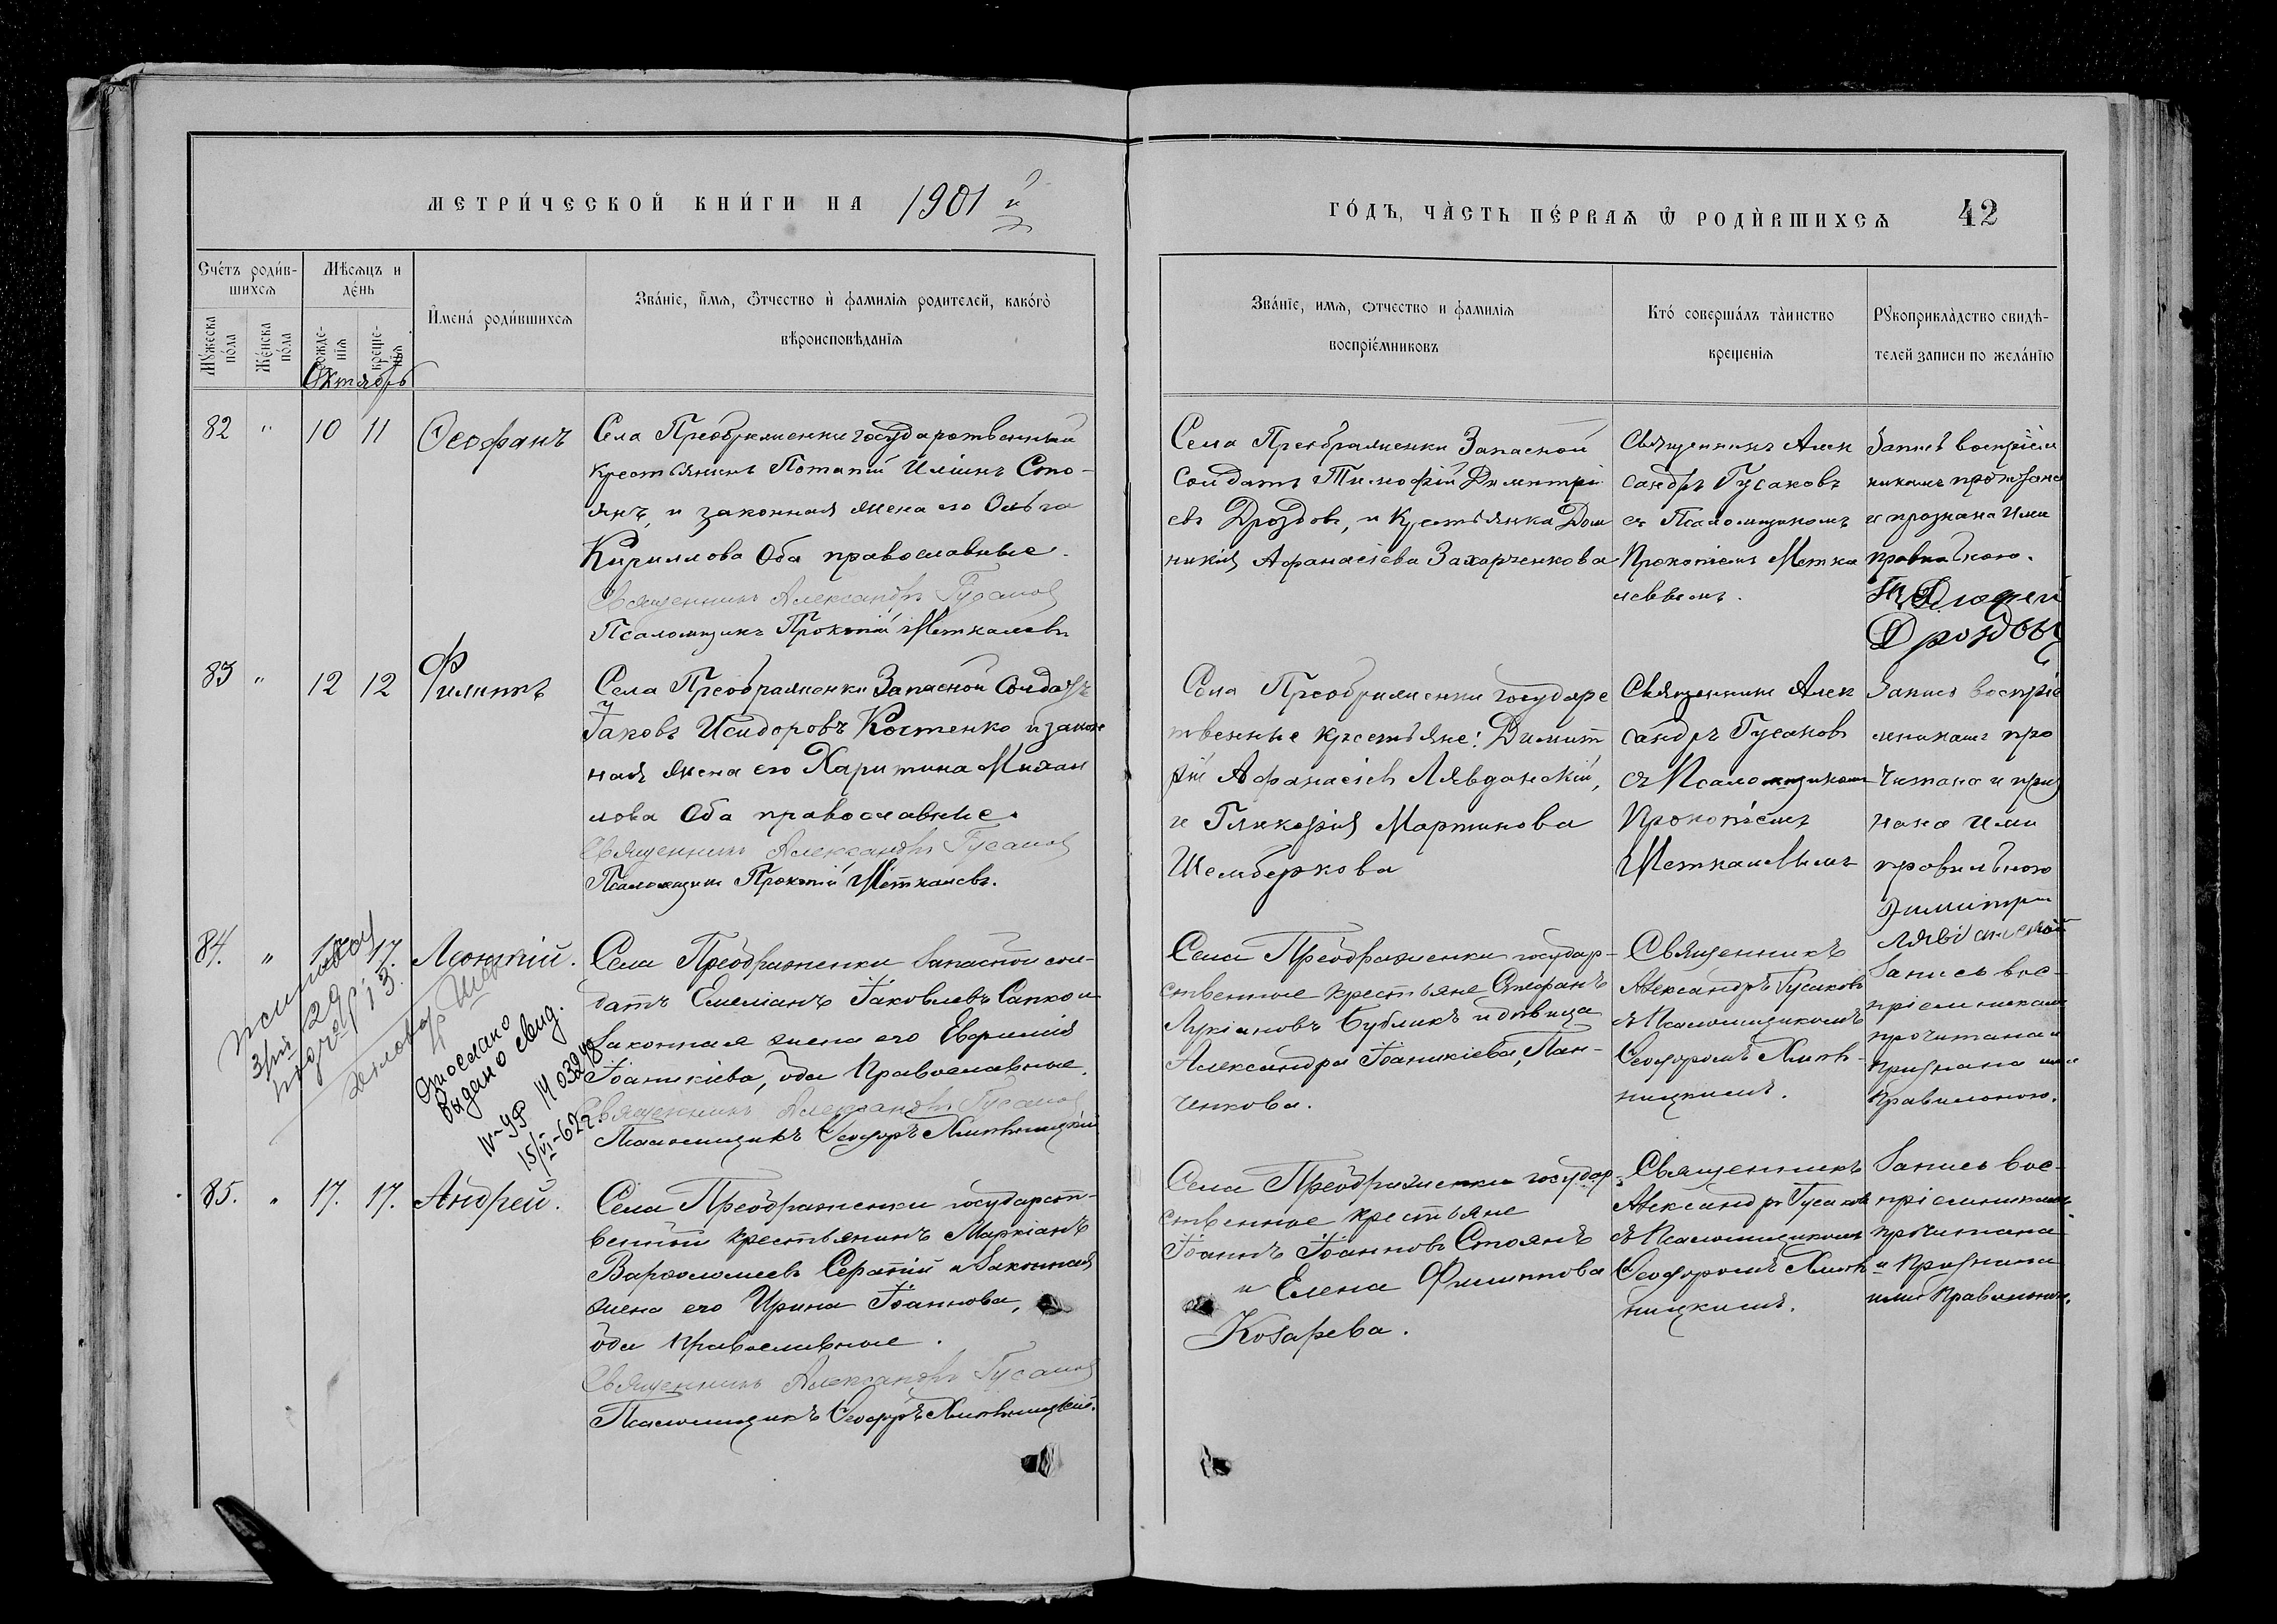 МЕТРИ́ЧЕСКОЙ КНИ́ГИ НА 1901 й
ГО́ДЪ, ЧА̀СТЬ ПЕ́РВАѦ Ѿ РОДЍВШИХСѦ 42
Сче́тъ роди́в-
шихсѧ
Мѣсѧцъ и
де́нь
Мꙋ́жеска
по́ла
Же́нска
по́ла
рожде-
нїѧ
креще-
нїѧ
Имена̀ роди́вшихсѧ
Зва́нїе, и́мѧ, ѻ́тчество и҆ фамилїѧ родителей, како́гѡ
вѣроисповѣданїѧ
Зва́нїе, имѧ, ѻтчество и фамилїѧ
воспрїе́мниковъ
Кто́ соверша́лъ та̀инство
креще́нїѧ
Рꙋкоприкла̀дство свидѣ-
телей записи по жела́нїю
Октябрь
82 " 10 11 Ѳеофанъ
Села Преображенки государственный
крестьянинъ Потапій Иліинъ Сто-
янъ, и законная жена его Ольга
Кириллова Оба православные.
Священникъ Александръ Гусаковъ
Псаломщикъ Прокопій Меткалевъ
Села Преображенки Запасной
Солдатъ Тимофій Димитрі
евъ Дроздовъ, и Крестьянка Дом
никія Афанасіева Захарченкова
Священникъ Алек
сандръ Гусаковъ
съ Псаломщикомъ
Прокопіемъ Метка
левымъ.
Запись воспріем
никамъ прочитана
и признана ими
правильною.
Дроздовъ
83 " 12 12 Филиппъ
Села Преображенки Запасной Солдатъ
Іаковъ Исидоровъ Костенко и закон
ная жена его Харитина Михаи
лова Оба православные.
Священникъ Александръ Гусаковъ
Псаломщикъ Прокопій Меткалевъ.
Села Преображенки государс
твенные крестьяне: Димит
рій Афанасіевъ Лявданскій,
и Гликерія Мартинова
Шемберкова
Священникъ Алек
сандръ Гусаковъ
съ Псаломщикомъ
Прокопіемъ
Меткалевымъ
Запись воспріе
мникамъ про
читана и приз
нана ими
правильною
Димитрій
84. " 17. Леонтій.
Села Преображенки Запасной сол-
датъ Емеліанъ Іаковлевъ Сапко и
Законная жена его Евфимія
Іоаникіева, оба Православные.
Священникъ Александръ Гусаковъ
Псаломщикъ Ѳеодоръ Хмѣльницкій
Села Преображенки государ-
ственные крестьяне Стефанъ
Лукіановъ Бубликъ и дѣвица
Александра Іоаникіева, Пан-
ченкова.
Священникъ
Александръ Гусаковъ
съ Псаломщикомъ
Ѳеодоромъ Хмѣль-
ницкимъ.
Запись вос-
пріемникамъ
прочитана и
признана ими
Правильною.
Отослано
Выдано свид.
IV-УР № 03248
15/VI-62 г.
85. " 17. 17. Андрей.
Села Преображенки государст-
венный крестьянинъ Маркіанъ
Варѳоломеевъ Сератій и Законная
жена его Ирина Іоаннова,
оба Православные.
Священникъ Александръ Гусаковъ
Псаломщикъ Ѳеодоръ Хмѣльницкій.
Села Преображенки государ-
ственные крестьяне
Іоаннъ Іоанновъ Стоянъ
и Елена Филиппова
Козарева.
Священникъ
Александръ Гусаковъ
съ Псаломщикомъ
Ѳеодоромъ Хмѣль-
ницкимъ.
Запись вос-
пріемникамъ
прочитана
и Признана
ими Правильною.